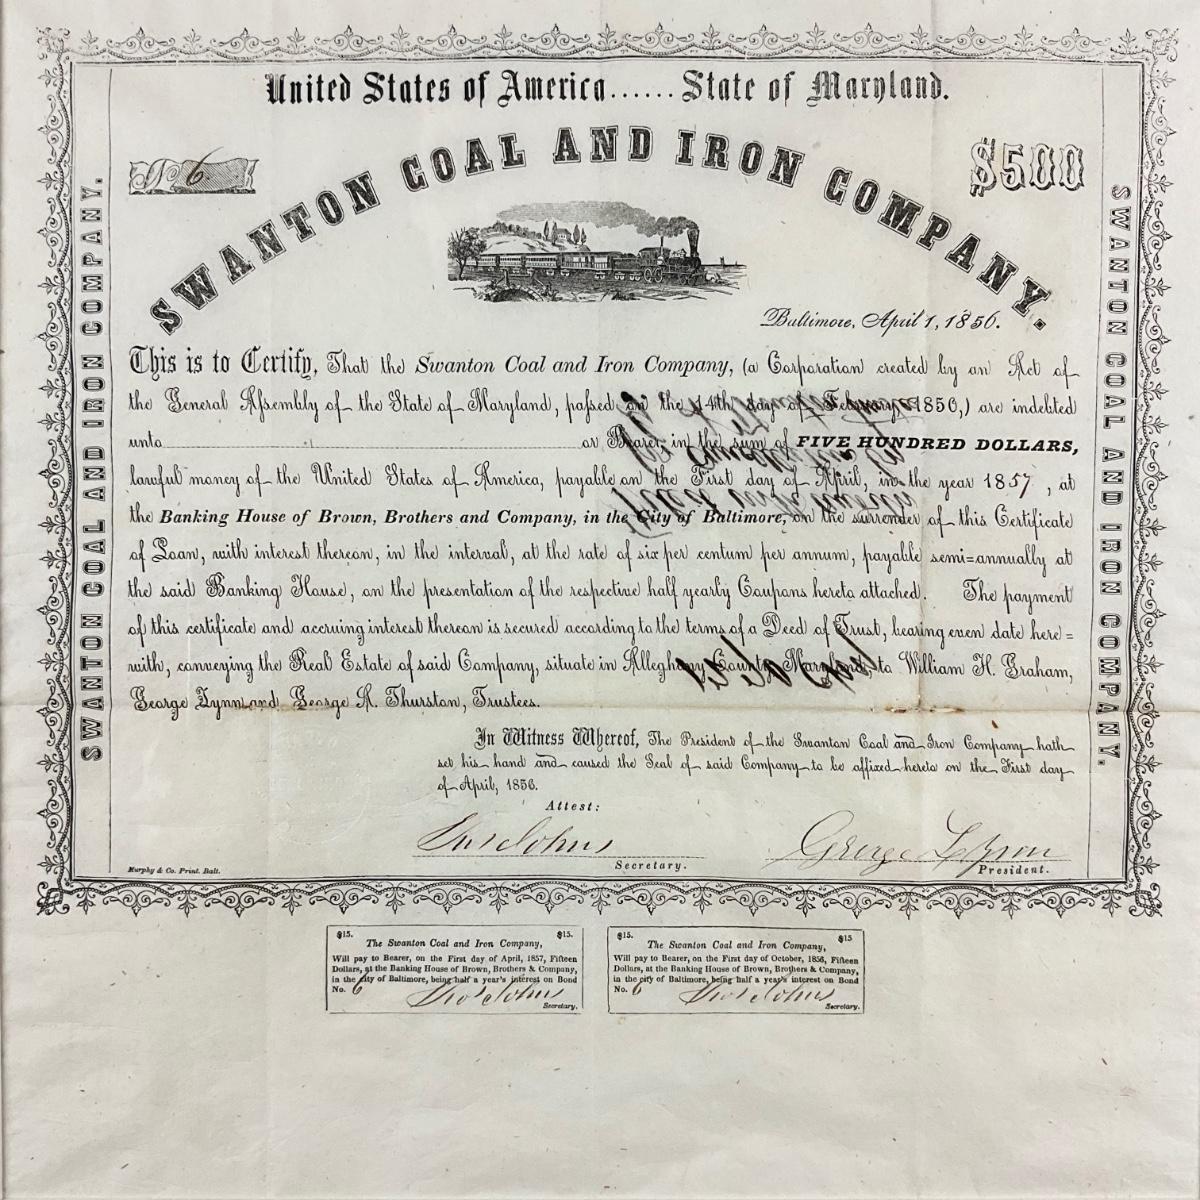 United States of America......State of Maryland.
No 6
SWANTON COAL AND IRON COMPANY.
$500
Baltimore, April 1, 1856.
This is to Certify, That the Swanton Coal and Iron Company, (a Corporation created by an Act of
the General Assembly of the State of Maryland, passed on the 4th day of February 1850,) are indebted
unto or Bearer, in the sum of FIVE HUNDRED DOLLARS,
lawful money of the United States of America, payable on the First day of April, in the year 1857, at
the Banking House of Brown, Brothers and Company, in the City of Baltimore, on the surrender of this Certificate
of Loan, with interest thereon, in the interval, at the rate of six per centum per annum, payable semi=annually at
the said Banking House, on the presentation of the respective half yearly Coupons hereto attached. The payment
of this certificate and accruing interest thereon is secured according to the terms of a Deed of Trust, bearing even date here=
with, conveying the Real Estate of said Company, situate in Alleghany County Maryland, to William H. Graham,
George Lynn and George A. Thurston, Trustees.
In Witness Whereof, The President of the Swanton Coal and Iron Company hath
set his hand and caused the Seal of said Company to be affixed hereto on the First day
of April, 1856.
Attest:
Secretary.
George
President.
Murphy & Co. Print. Balt.
SWANTON COAL AND IRON COMPANY.
SWANTON COAL AND IRON COMPANY.
$15. $15.
The Swanton Coal and Iron Company,
Will pay to Bearer, on the First day of April, 1857, Fifteen
Dollars, at the Banking House of Brown, Brothers & Company,
in the city of Baltimore, being half a year's interest on Bond
No. 6
Secretary.
$15. $15
The Swanton Coal and Iron Company,
Will pay to Bearer, on the First day of October, 1856, Fifteen
Dollars, at the Banking House of Brown, Brothers & Company,
in the city of Baltimore, being half a year's interest on Bond
No. 6
Secretary.